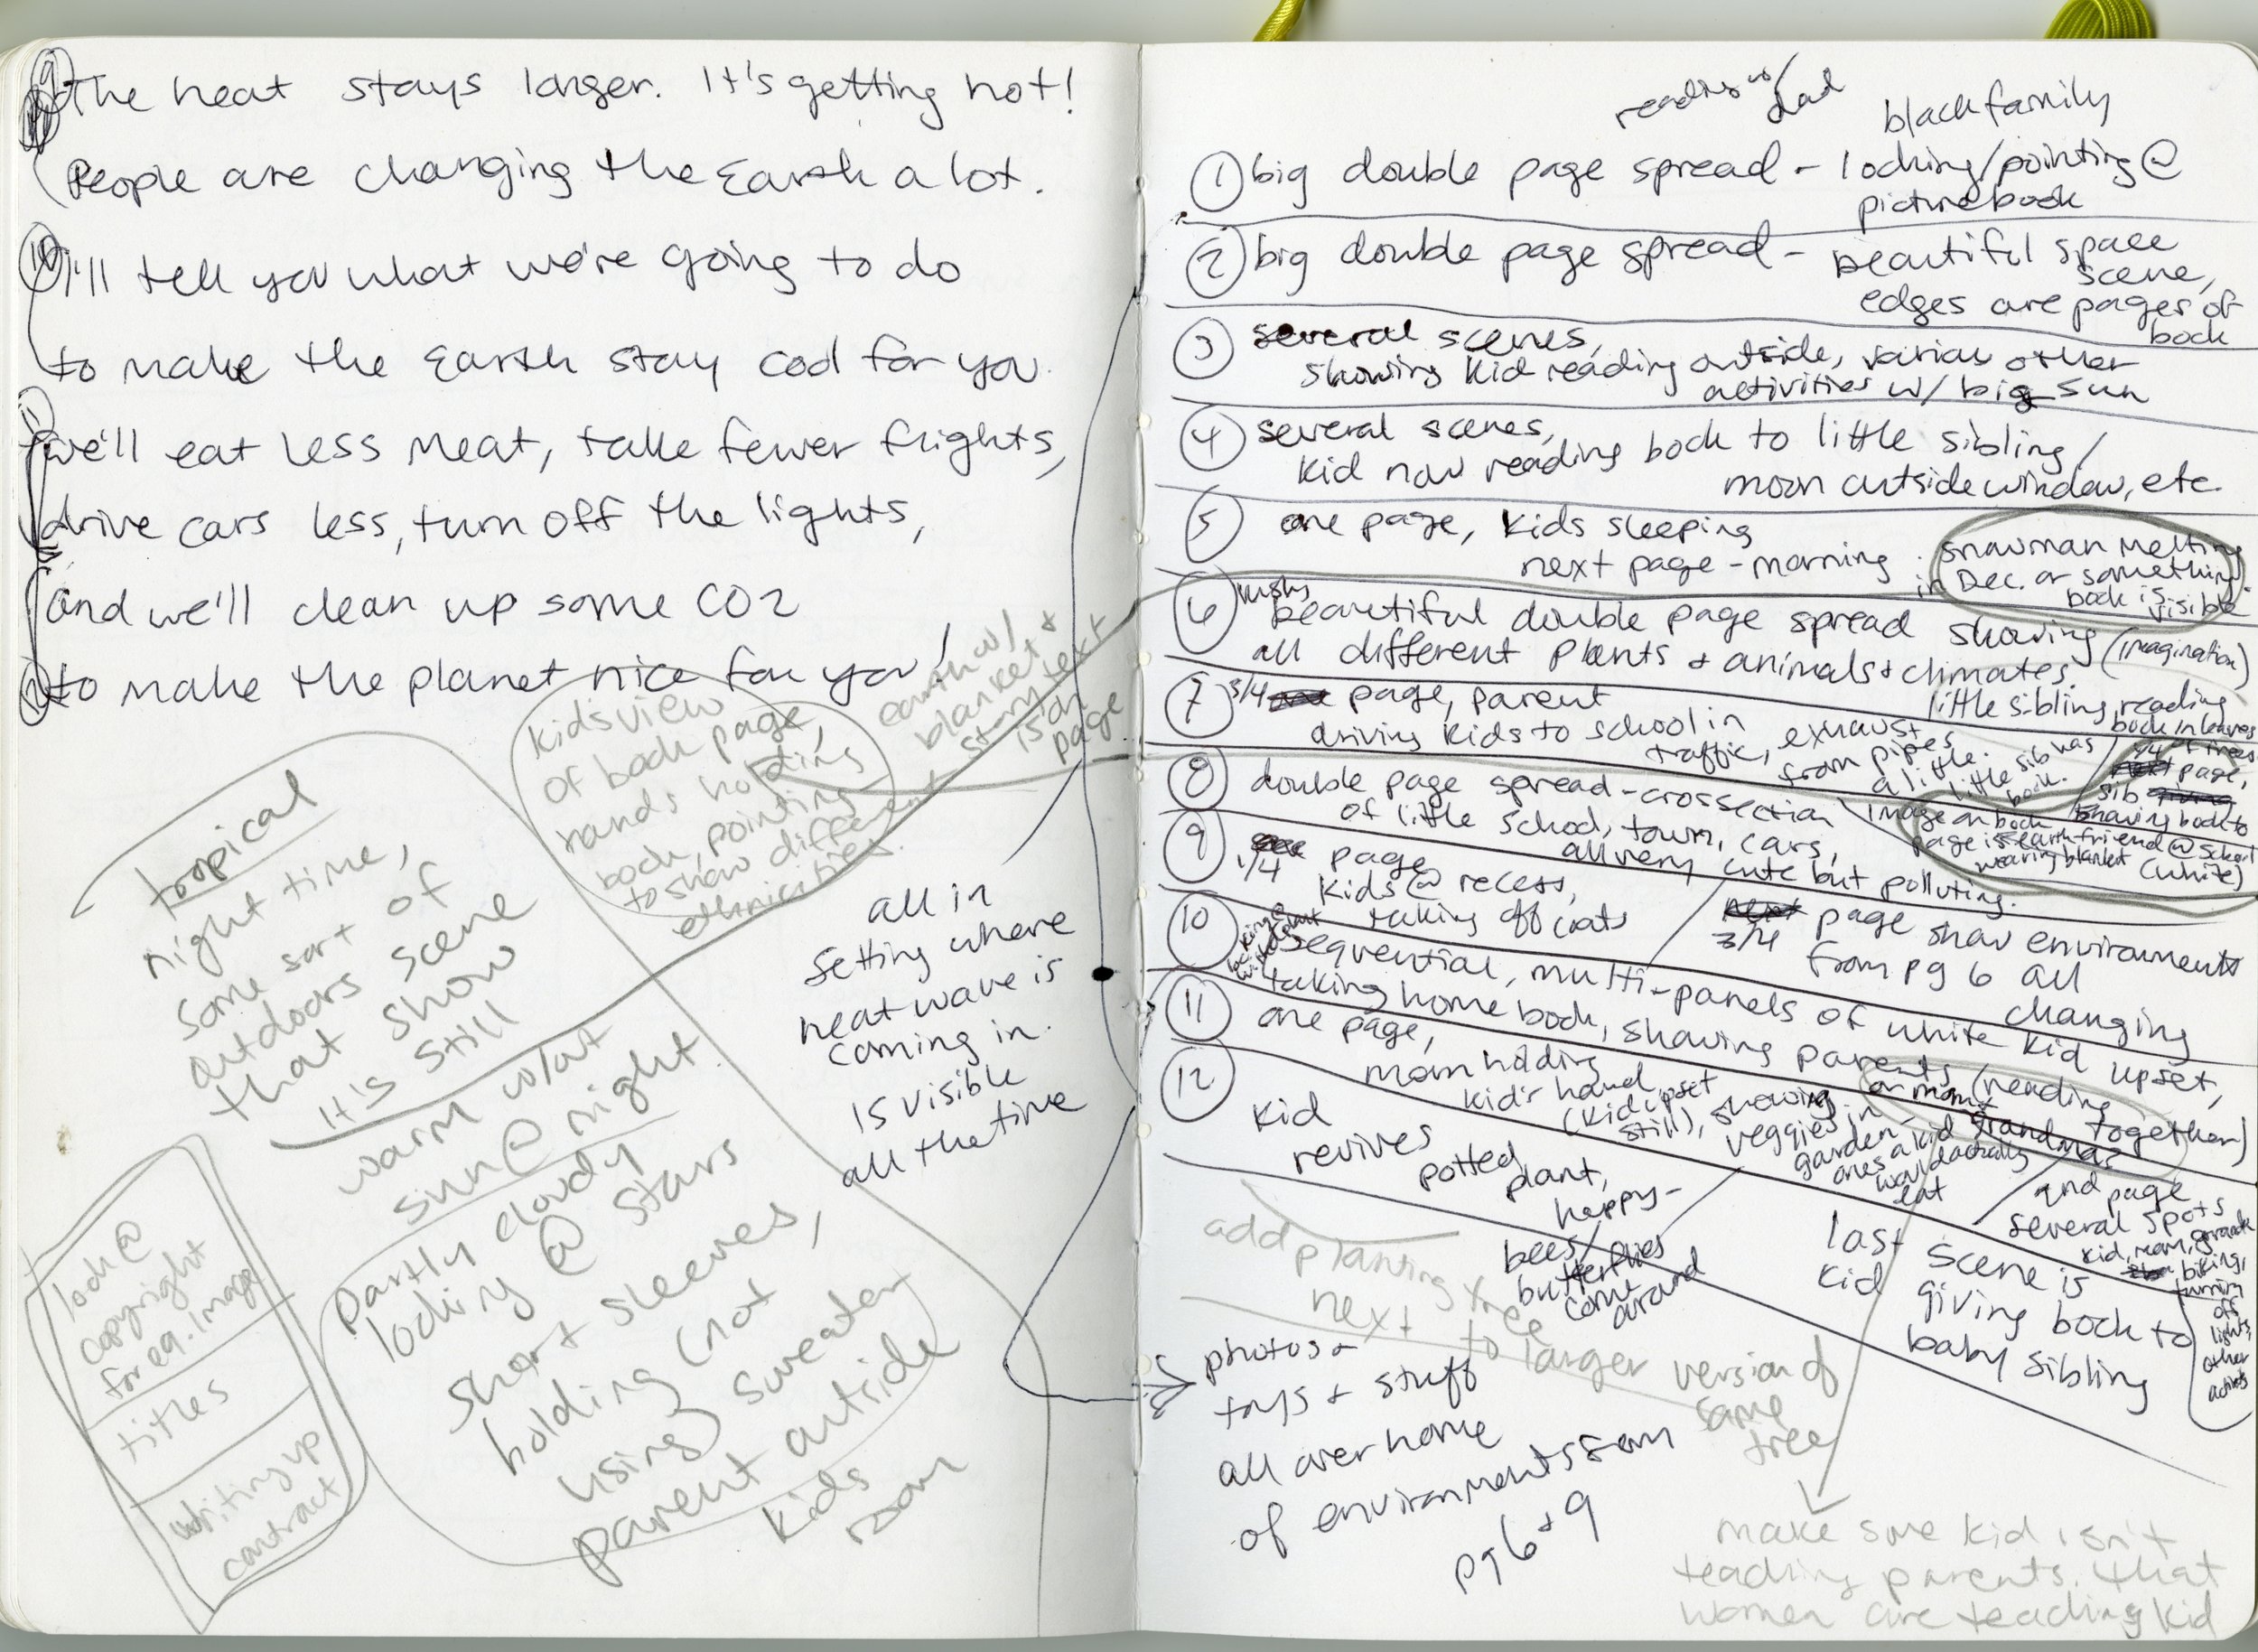 9 The heat stays longer. It's getting hot!
People are changing the Earth a lot.
10 I'll tell you what we're going to do
to make the Earth stay cool for you.
11 We'll eat less meat, take fewer flights,
drive cars less, turn off the lights,
and we'll clean up some CO2
12 to make the planet nice for you!
kids view
of book page,
hands holding
book, pointing
to show different
ethnicities.
earth w/
blanket &
story text
is on
page
tropical
night time,
some sort of
outdoors scene
that show
it's still
warm w/out
sun @ night
partly cloudy
looking @ stars
short sleeves,
holding (not
using) sweater
parent outside
kids
room
look @
copyright
for eq. image
titles
writing up
contract
all in
setting where
heat wave is
coming in.
is visible
all the time
reading w/
dad
black family
1 big double page spread - looking/pointing @
picture book
2 big double page spread - beautiful space
scene,
edges are pages of
book
3 several scenes,
showing kid reading outside, various other
activities w/ big sun
4 several scenes,
kid now reading book to little sibling/
moon outside window, etc.
5 one page, kids sleeping
next page - morning
snowman melting
in Dec. or something
book is
visible
6 beautiful double page spread showing
all different plants & animals & climates.
(imagination)
7 3/4 page, parent
driving kids to school in
traffic, exhaust
from pipes
a little.
little sib has
book.
little sibling reading
book in leaves
1/4 page,
sib
showing book to
friend @ school
(white)
image on book
page is earth
wearing blanket
8 double page spread - crossection
of little school, town, cars,
all very cute but polluting.
9 1/4 page
kids @ recess,
taking off coats
3/4 page show environments
from pg 6 all
changing
10 sequential, multi-panels of white kid upset,
taking home book, showing parents (reading
together)
or mom &
grandma?
11 one page,
mom holding
kid's hand
(kid upset
still), showing
veggies in
garden -
ones a kid
would actually
eat
2nd page
several spots
kid, mom, grandma
biking,
turning
off
lights,
other
activities
12 kid
revives
potted
plant,
happy -
bees/
butterflies
come
around
last scene is
kid giving book to
baby sibling
add planting tree
next to larger version of
same
tree
photos &
toys & stuff
all over home
of environments from
pg 6 & 9
make sure kid isn't
teaching parents. that
women are teaching kid